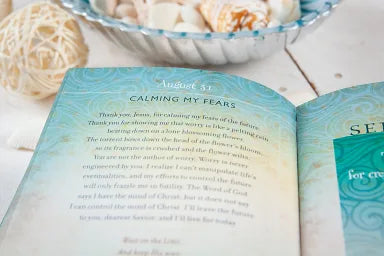 August 31
CALMING MY FEARS
Thank you, Jesus, for calming my fears of the future.
Thank you for showing me that worry is like a pelting rain
beating down on a lone blossoming flower.
The torrent bows down the head of the flower's bloom,
so its fragrance is crushed and the flower wilts.
You are not the author of worry. Worry is never
engineered by you. I realize I can't manipulate life's
eventualities, and my efforts to control the future
will only fragile me to futility. The Word of God
says I have the mind of Christ, but it does not say
I can control the mind of Christ. I'll leave the future
to you, dearest Savior, and I'll live for today
Wait on the LORD,
And keep His way
SE
for cre